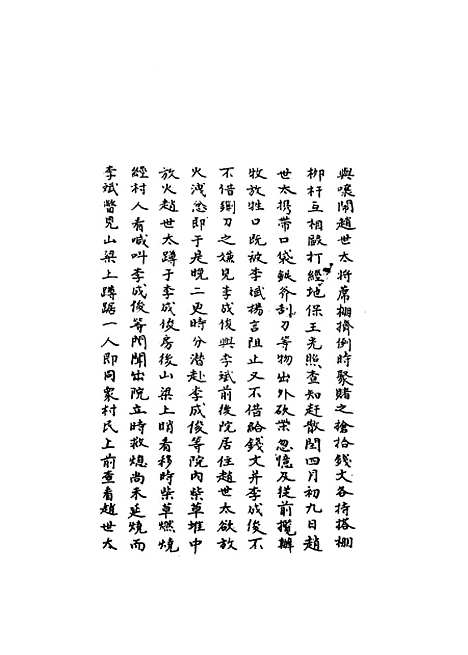 與嚷鬧趙世太將席棚擠倒時聚賭之搶拾錢文各持搭棚
柳杆互相毆打經地保王光照查知赶散閏四月初九日趙
世太携帶口袋鉄斧刮刀等物出外砍柴忽憶及從前攬辦
牧放牲口既被李斌揚言阻止又不借給錢文并李成俊不
不借鍘刀之嫌見李成俊與李斌前後院居住趙世太欲放
火洩忿即于是晚二更時分潜赴李成俊等院內柴草堆中
放火趙世太蹲于李成俊房後山梁上哨看移時柴草燃燒
經村人看喊叫李成俊等開門出院立時救熄尚未延燒而
李斌瞥見山梁上蹲踞一人即同衆村民上前查看趙世太